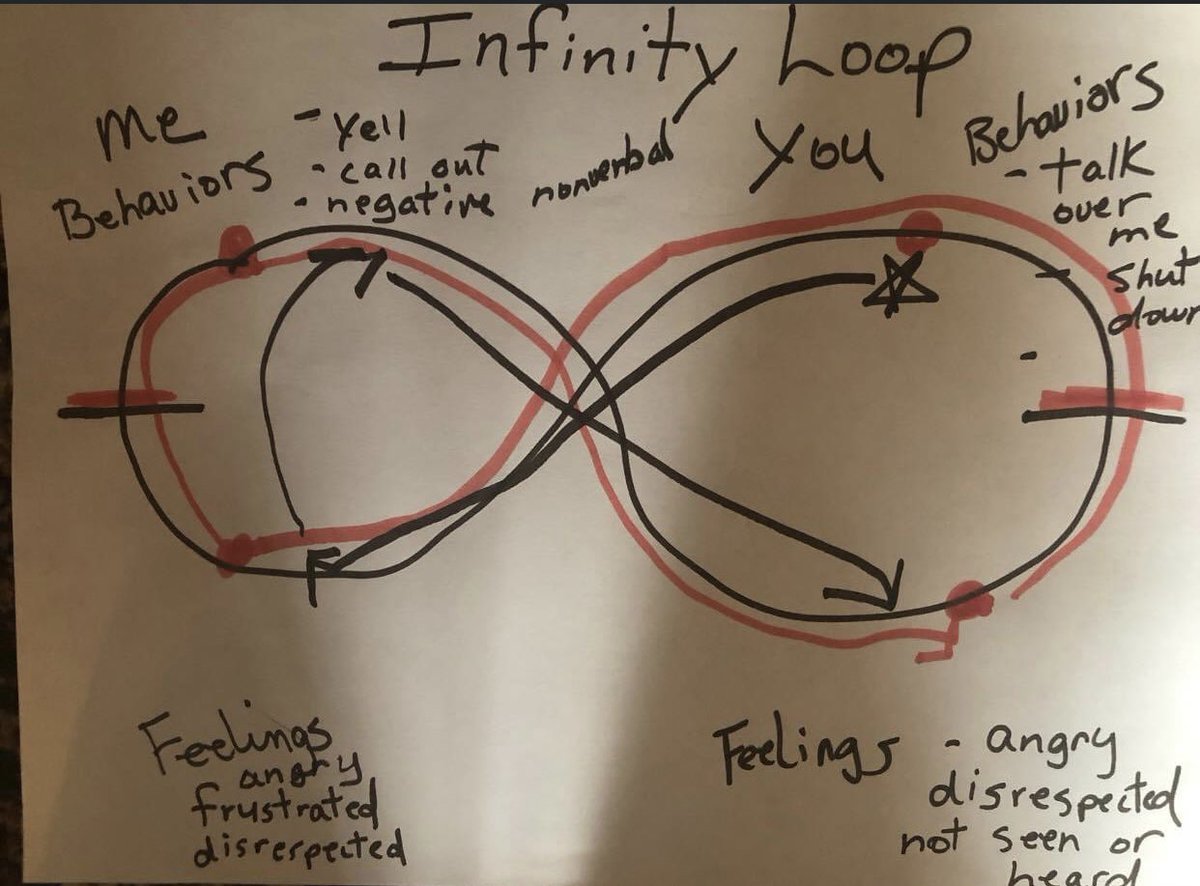 Infinity Loop
Me
Behaviors
- Yell
- call out
- negative nonverbal
You
Behaviors
- talk
over
me
- Shut
down
-
Feelings
angry
frustrated
disrespected
Feelings - angry
disrespected
not seen or
heard